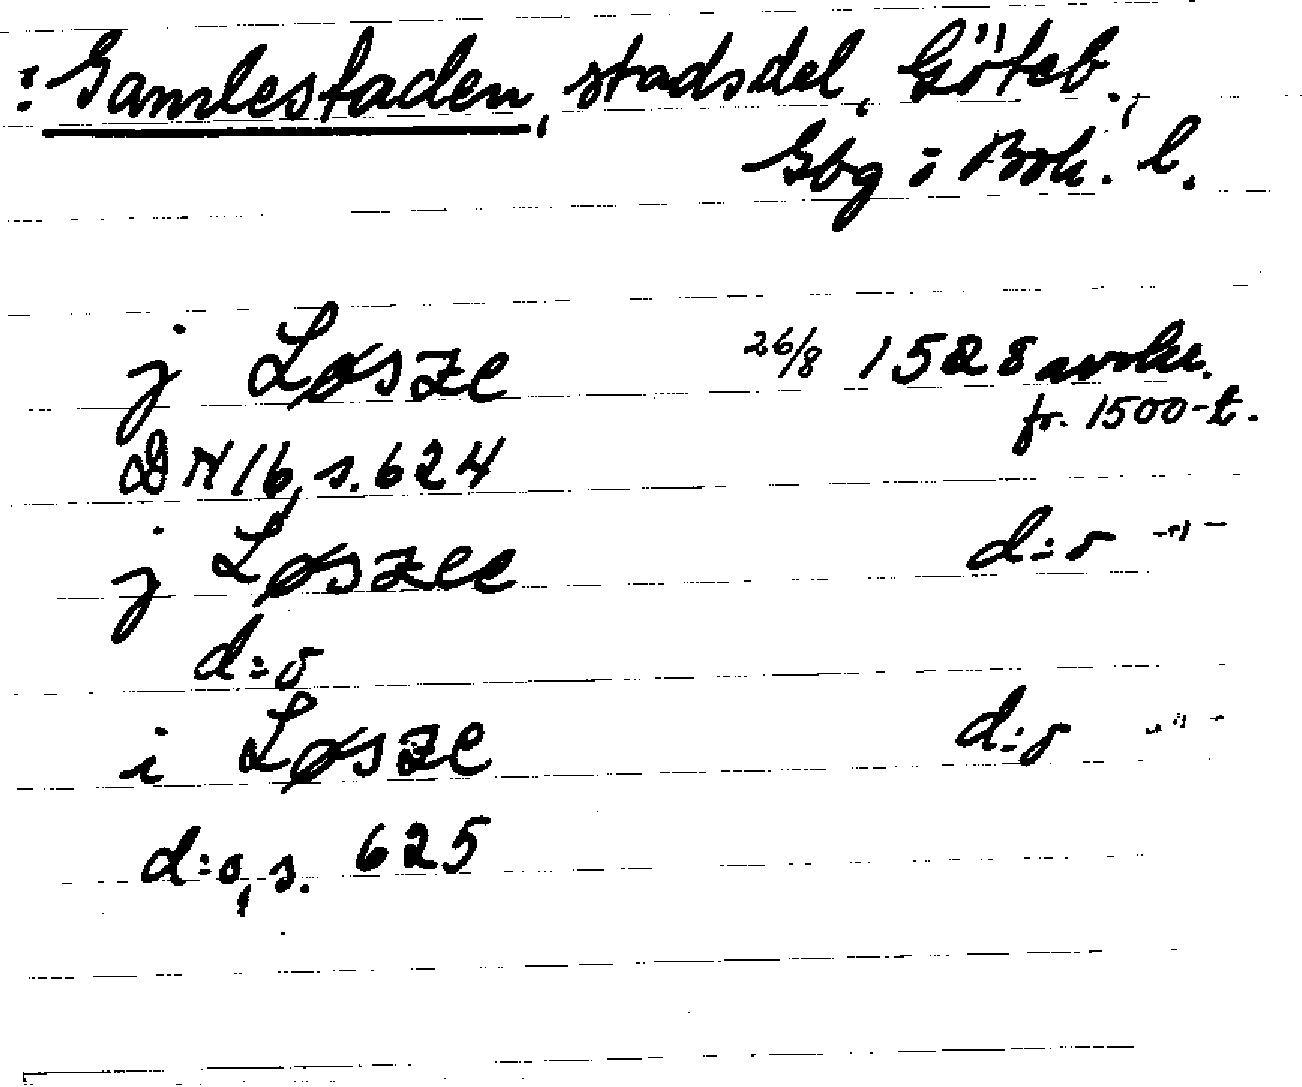 : Gamlestaden, stadsdel, Göteb.,
Gbg i Boh. l.
j Løsze 26/8 1528 avskr.
fr. 1500-t.
DN 16, s. 624
j Løszee d:o -"-
d:o
i Løsze d:o -"-
d:o, s. 625